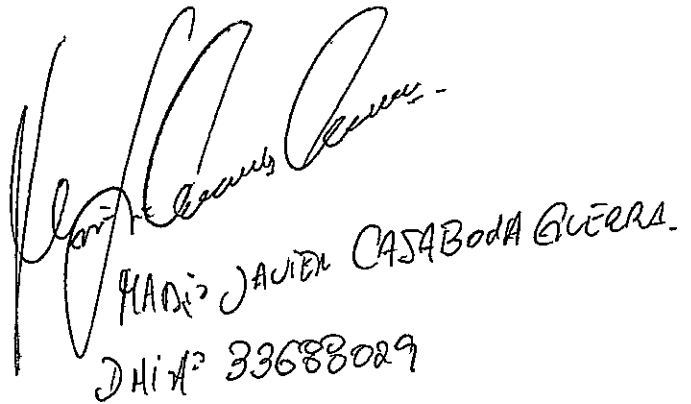 MARIO JAVIER CASABONA GUERRA.
DNI Nº 33688029